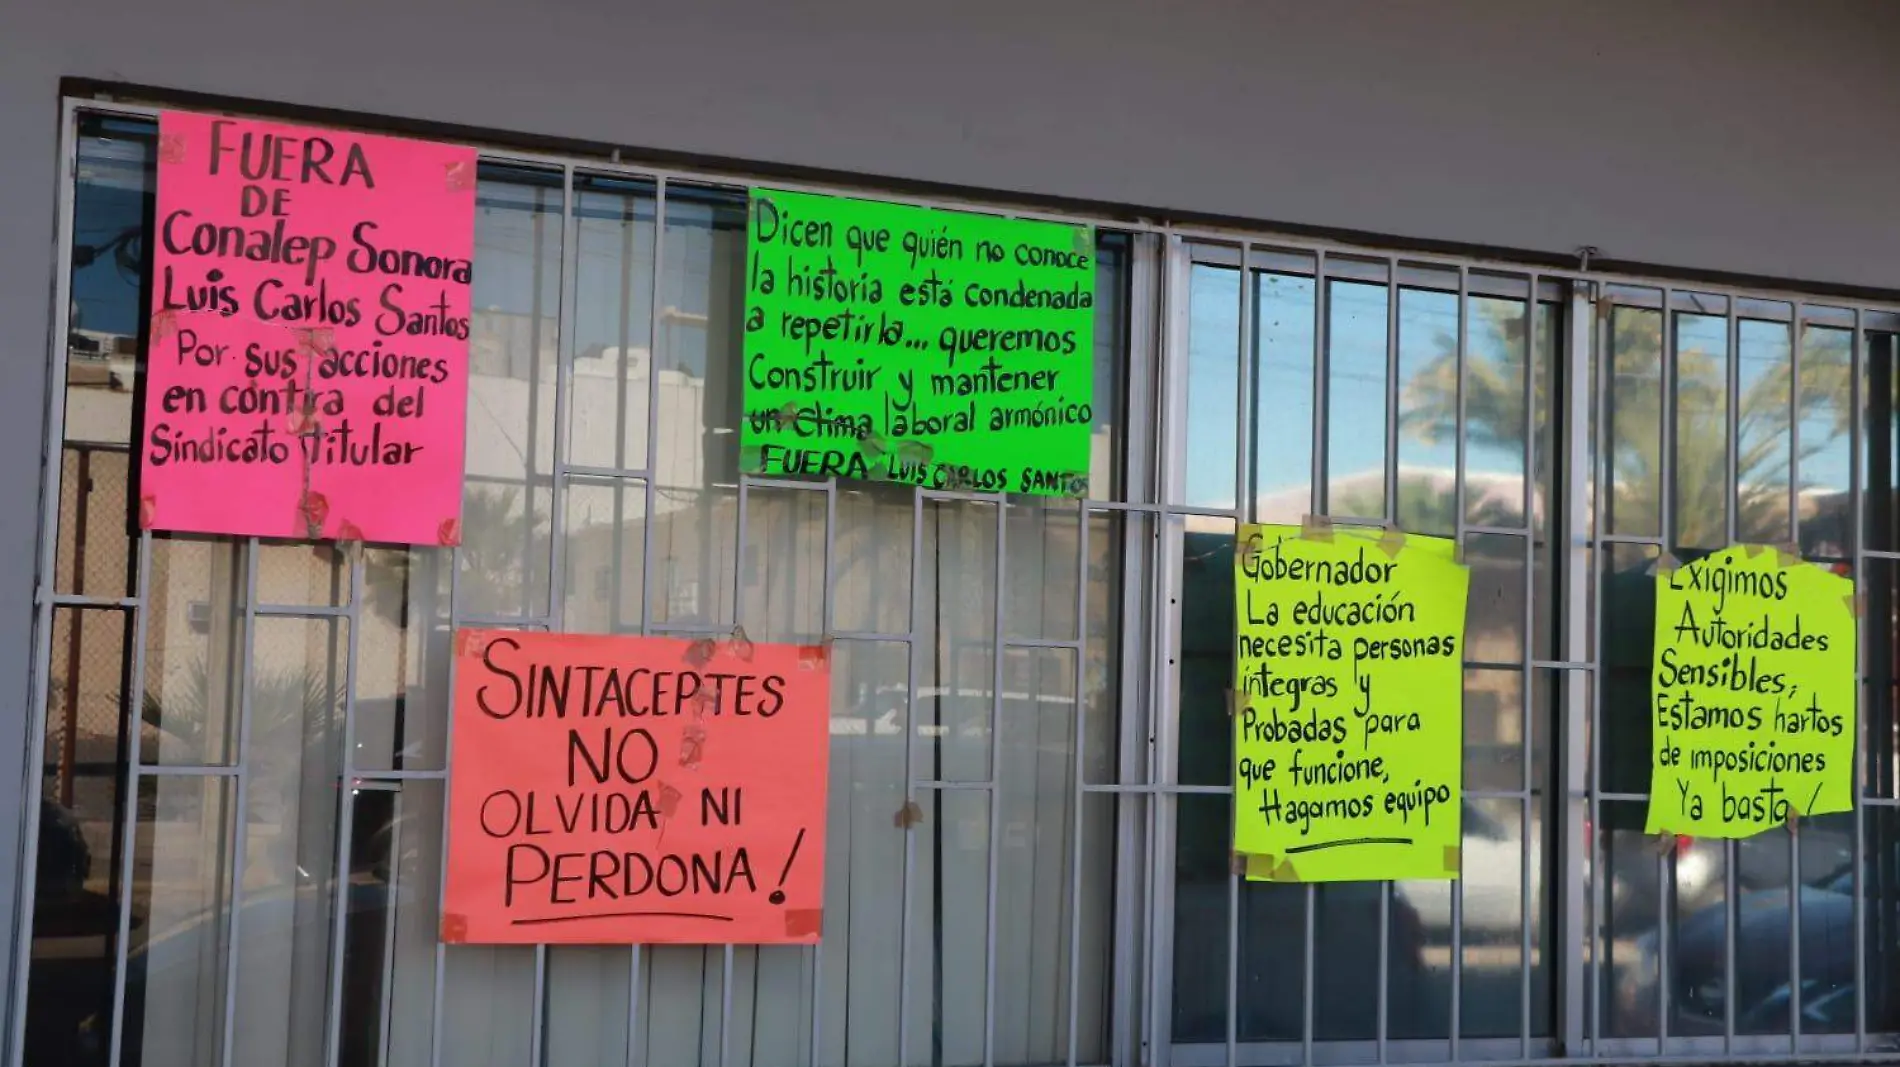 FUERA
DE
Conalep Sonora
Luis Carlos Santos
Por sus acciones
en contra del
Sindicato titular
Dicen que quién no conoce
la historia está condenada
a repetirla... queremos
Construir y mantener
un clima laboral armónico
FUERA LUIS CARLOS SANTOS
SINTACEPTES
NO
OLVIDA NI
PERDONA!
Gobernador
La educación
necesita personas
íntegras y
Probadas para
que funcione,
Hagamos equipo
Exigimos
Autoridades
Sensibles,
Estamos hartos
de imposiciones
Ya basta!